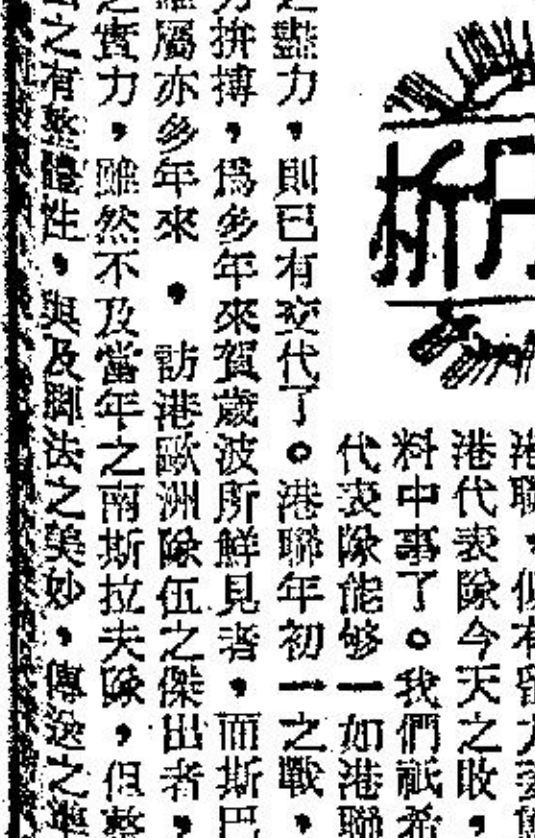 港聯，似有留力
港代表隊今天之敗，
料中事了。我們祇希
代表隊能够一如港聯
盡力，則已有交代了。港聯年初一之戰，
力拚搏，爲多年來賀歲波所鮮見者，而斯巴
屬亦多年來，訪港歐洲隊伍之傑出者，
之實力，雖然不及當年之南斯拉夫隊，但整
之有整體性，與及脚法之美妙，傳送之準